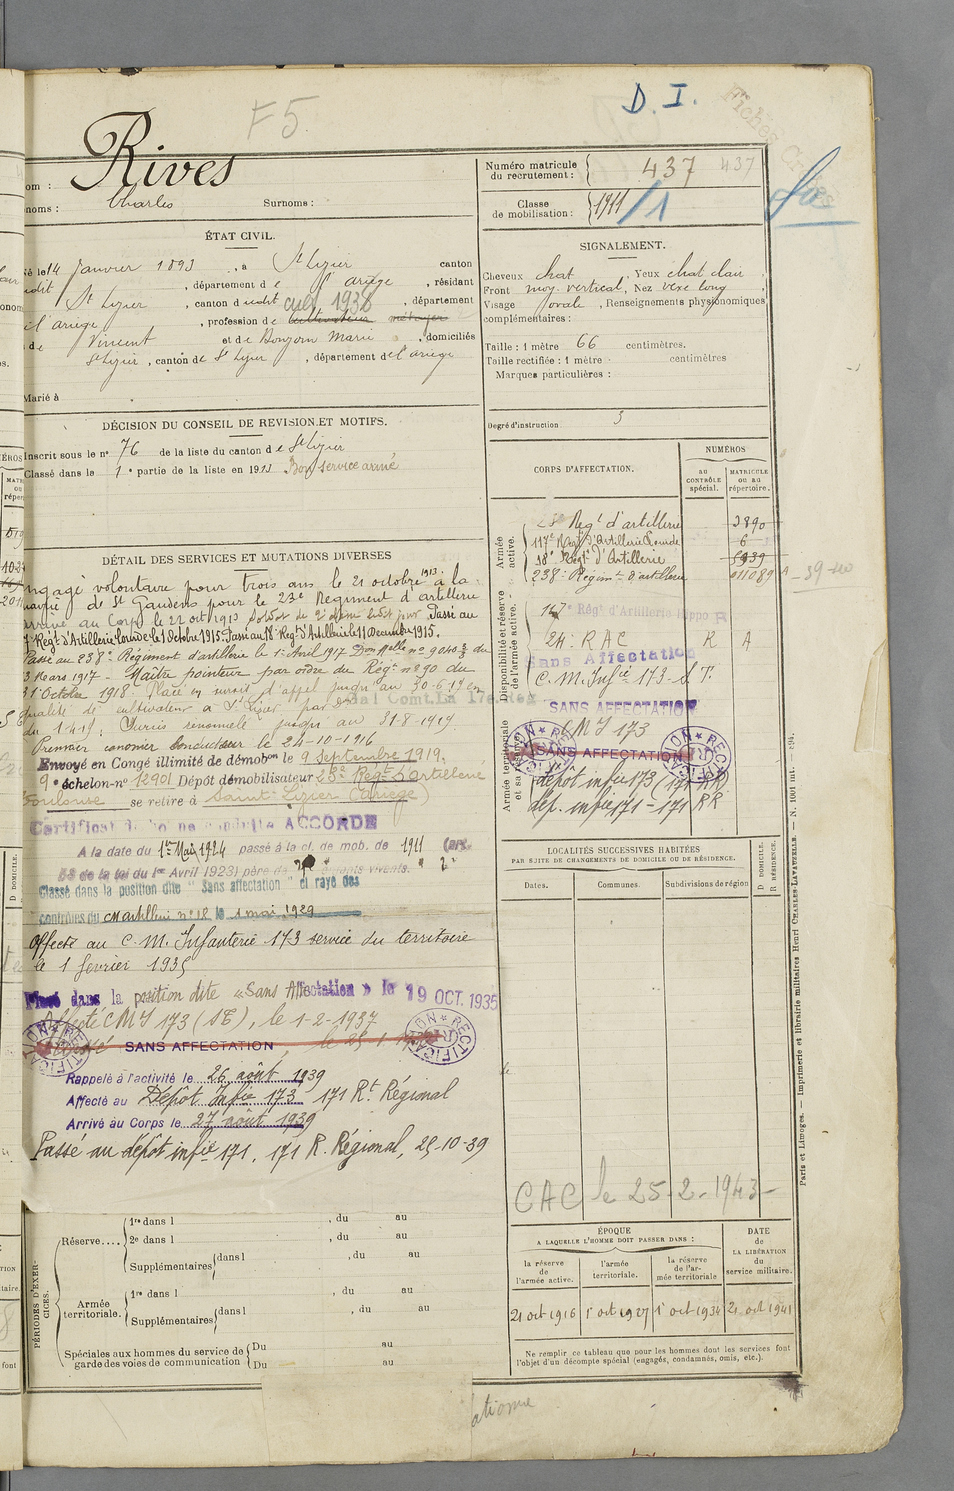 F5
D. I.
Rives
om :
noms : Charles Surnoms :
Numéro matricule du recrutement : 437 437
Classe de mobilisation : 1911 /1
ÉTAT CIVIL.
é le 14 Janvier 1893, à St Lizier canton
udit, département de l'ariège, résidant
St Lizier, canton dudit cult 1938, département
de l'ariège, profession de cultivateur métayer
de Vincent et de Bonzom Marie, domiciliés
St Lizier, canton de St Lizier, département de l'ariège
Marié à
SIGNALEMENT.
Cheveux chat, Yeux chat clair
Front moy. vertical, Nez vexe long
Visage ovale, Renseignements physionomiques
complémentaires :
Taille : 1 mètre 66 centimètres.
Taille rectifiée : 1 mètre centimètres
Marques particulières :
Degré d'instruction 3
DÉCISION DU CONSEIL DE REVISION ET MOTIFS.
Inscrit sous le no 76 de la liste du canton de St Lizier
Classé dans la 1e partie de la liste en 1913 Bon service armé
CORPS D'AFFECTATION.
NUMÉROS
au CONTRÔLE spécial.
MATRICULE ou au répertoire.
Armée active.
23e Regt d'artillerie 2890
117e Regt d'Artillerie Lourde 6
18e Regt d'Artillerie 5939
238e Regimt d'artillerie 011089
Disponibilité et réserve de l'armée active.
117e Régt d'Artillerie Hippo R
24. R A C R A
Sans Affectation
C. M. Infie 173 - S. T.
SANS AFFECTATION
Armée territoriale et sa réserve
CMI 173
SANS AFFECTATION
RECTIFICATION
dépôt infie 173 (171 RR)
dép. infie 171 - 171 RR
DÉTAIL DES SERVICES ET MUTATIONS DIVERSES
ngagé volontaire pour trois ans le 21 octobre 1913 à la
mairie de St Gaudens pour le 23e Régiment d'artillerie
arrivé au Corps le 22 oct 1913 Soldat de 2e classe ledit jour Passé au
7e Régt d'Artillerie Lourde le 1 Octobre 1915. Passé au 18e Regt d'Artillerie le 11 Décembre 1915.
Passé au 238e Régiment d'artillerie le 1er Avril 1917
3 Mars 1917 - Maître pointeur par ordre du Régt no 90 du
31 Octobre 1918. Placé en sursis d'appel jusqu'au 30-6-19 en
qualité de cultivateur à St Lizier par
du 1.4.19. Sursis renouvelé jusqu'au 31-8-1919.
Premier canonier conducteur le 24-10-1916
Envoyé en Congé illimité de démobon le 9 Septembre 1919.
9e échelon-no 12901 Dépôt démobilisateur 23e Régt d'artillerie
Toulouse se retire à Saint-Lizier (Ariège)
Certificat de bonne conduite ACCORDÉ
A la date du 1er Mai 1924 passé à la cl. de mob. de 1911 (art.
58 de la loi du 1er Avril 1923) père de 2 enfants vivants.
Classé dans la position dite " Sans affectation " et rayé des
contrôles du C M artillerie no 18 le 1 mai 1929
Affecté au C. M. Infanterie 173 service du territoire
le 1 fevrier 1935
Placé dans la position dite « Sans Affectation » le 19 OCT. 1935
Affecté CMI 173 (ST), le 1-2-1937
SANS AFFECTATION
RECTIFICATION
Rappelé à l'activité le 26 août 1939
Affecté au Dépôt Infie 173 171 Rt Régional
Arrivé au Corps le 27 août 1939
Passé au dépôt infie 171, 171 R. Régional, 25-10-39
LOCALITÉS SUCCESSIVES HABITÉES
PAR SUITE DE CHANGEMENTS DE DOMICILE OU DE RÉSIDENCE.
Dates. Communes. Subdivisions de région
D DOMICILE. R RÉSIDENCE.
CAC le 25-2-1943
ÉPOQUE
A LAQUELLE L'HOMME DOIT PASSER DANS :
la réserve de l'armée active.
l'armée territoriale.
la réserve de l'armée territoriale
DATE de LA LIBÉRATION du service militaire.
21 oct 1916 1er oct 1927 1er oct 1934 21 oct 1941
Ne remplir ce tableau que pour les hommes dont les services font
l'objet d'un décompte spécial (engagés, condamnés, omis, etc.).
PÉRIODES D'EXERCICES.
Réserve.... 1re dans l , du au
2e dans l , du au
Supplémentaires dans l , du au
Armée territoriale. 1re dans l , du au
Supplémentaires dans l , du au
Spéciales aux hommes du service de garde des voies de communication Du au
Du au
Paris et Limoges. — Imprimerie et librairie militaires Henri CHARLES-LAVAUZELLE.